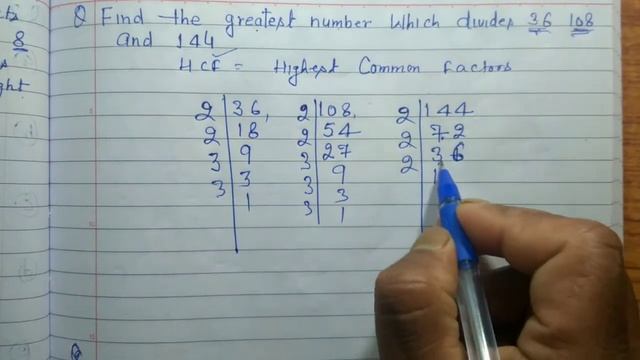 Q Find the greatest number which divides 36 108
and 144
HCF = Highest Common Factors
8
2 36, 2 108, 2 144
2 18 2 54 2 72
3 9 3 27 2 36
3 3 3 9 1
1 3 3
1